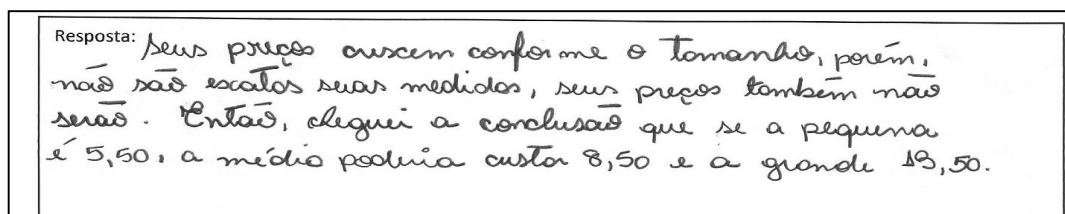 Resposta: Seus preços cuscem conforme o tomanho, porém,
não são escatos suas medidas, seus preços também não
serão. Então, cheguei a conclusão que se a pequena
é 5,50, a médio poderia custar 8,50 e a grande 13,50.